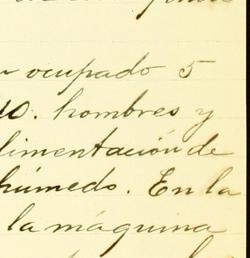 ocupado 5
10. hombres y
limentación de
húmedo. En la
la máquina